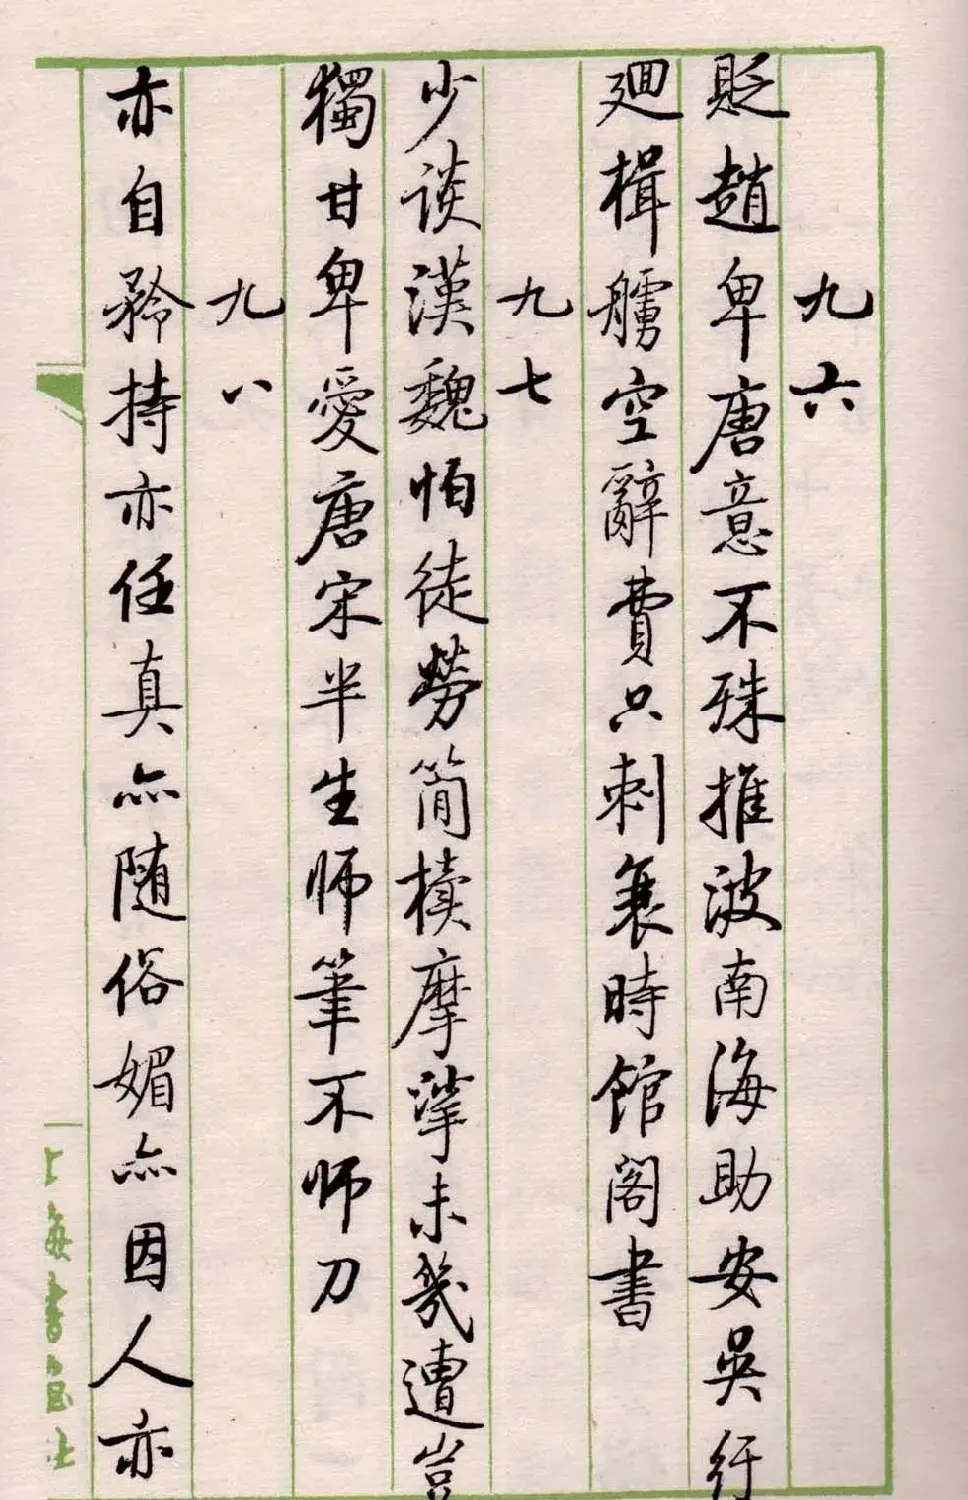 九六
貶趙卑唐意不殊推波南海助安吳行
廻楫艣空辭費只刺衰時館閣書
九七
少談漢魏怕徒勞簡牘摩挲未幾遭豈
獨甘卑愛唐宋半生師筆不師刀
九八
亦自矜持亦任真亦随俗媚亦因人亦
上海書畫社